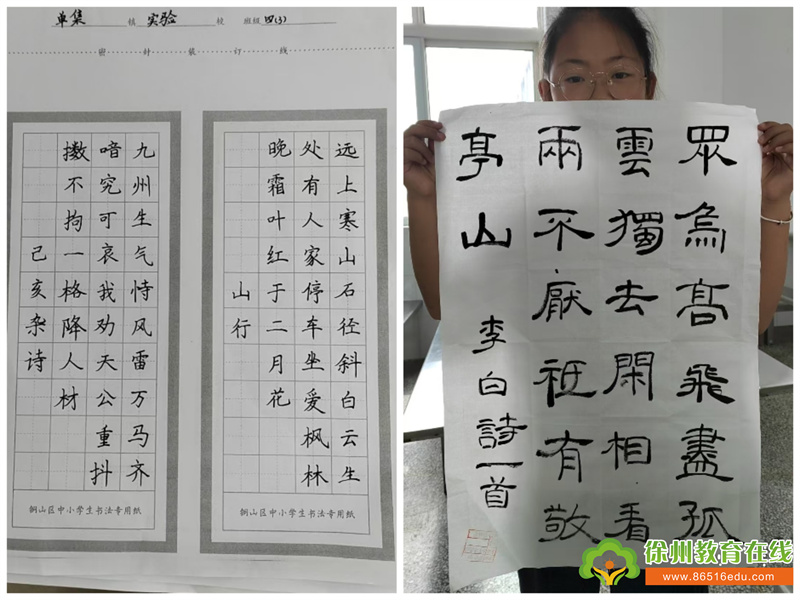 单集 实验 校 班级 四(3)
密 封 装 订 线
九州生气恃风雷万马齐
喑究可哀我劝天公重抖
擞不拘一格降人材
己亥杂诗
铜山区中小学生书法专用纸
远上寒山石径斜白云生
处有人家停车坐爱枫林
晚霜叶红于二月花
山行
铜山区中小学生书法专用纸
眾鳥髙飛盡孤
雲獨去閑相看
兩不厭衹有敬
亭山
李白詩一首
徐州教育在线
www.86516edu.com